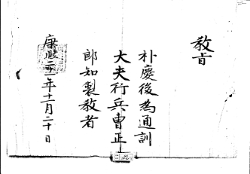 教旨
朴慶後為通訓
大夫行兵曹正
郎知製教者
康熙年十月二十日